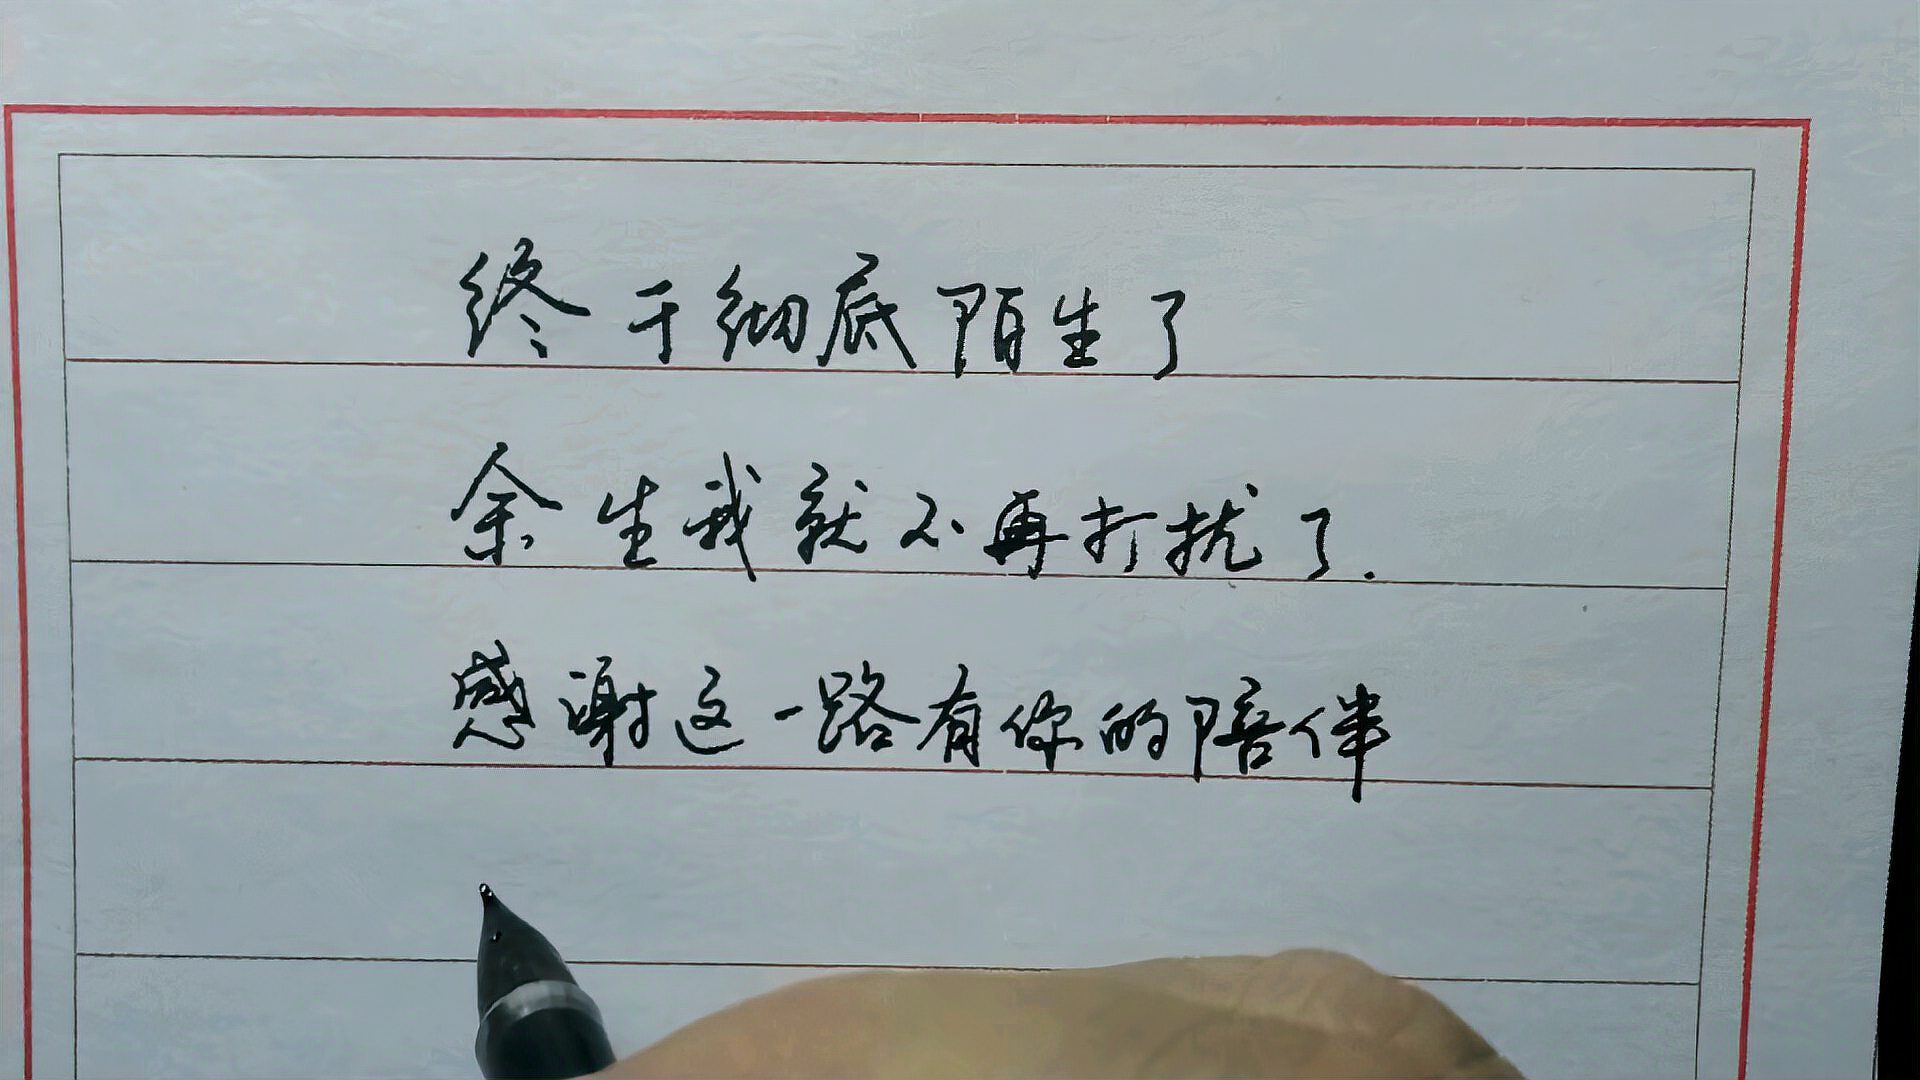 终于彻底陌生了
余生我就不再打扰了.
感谢这一路有你的陪伴